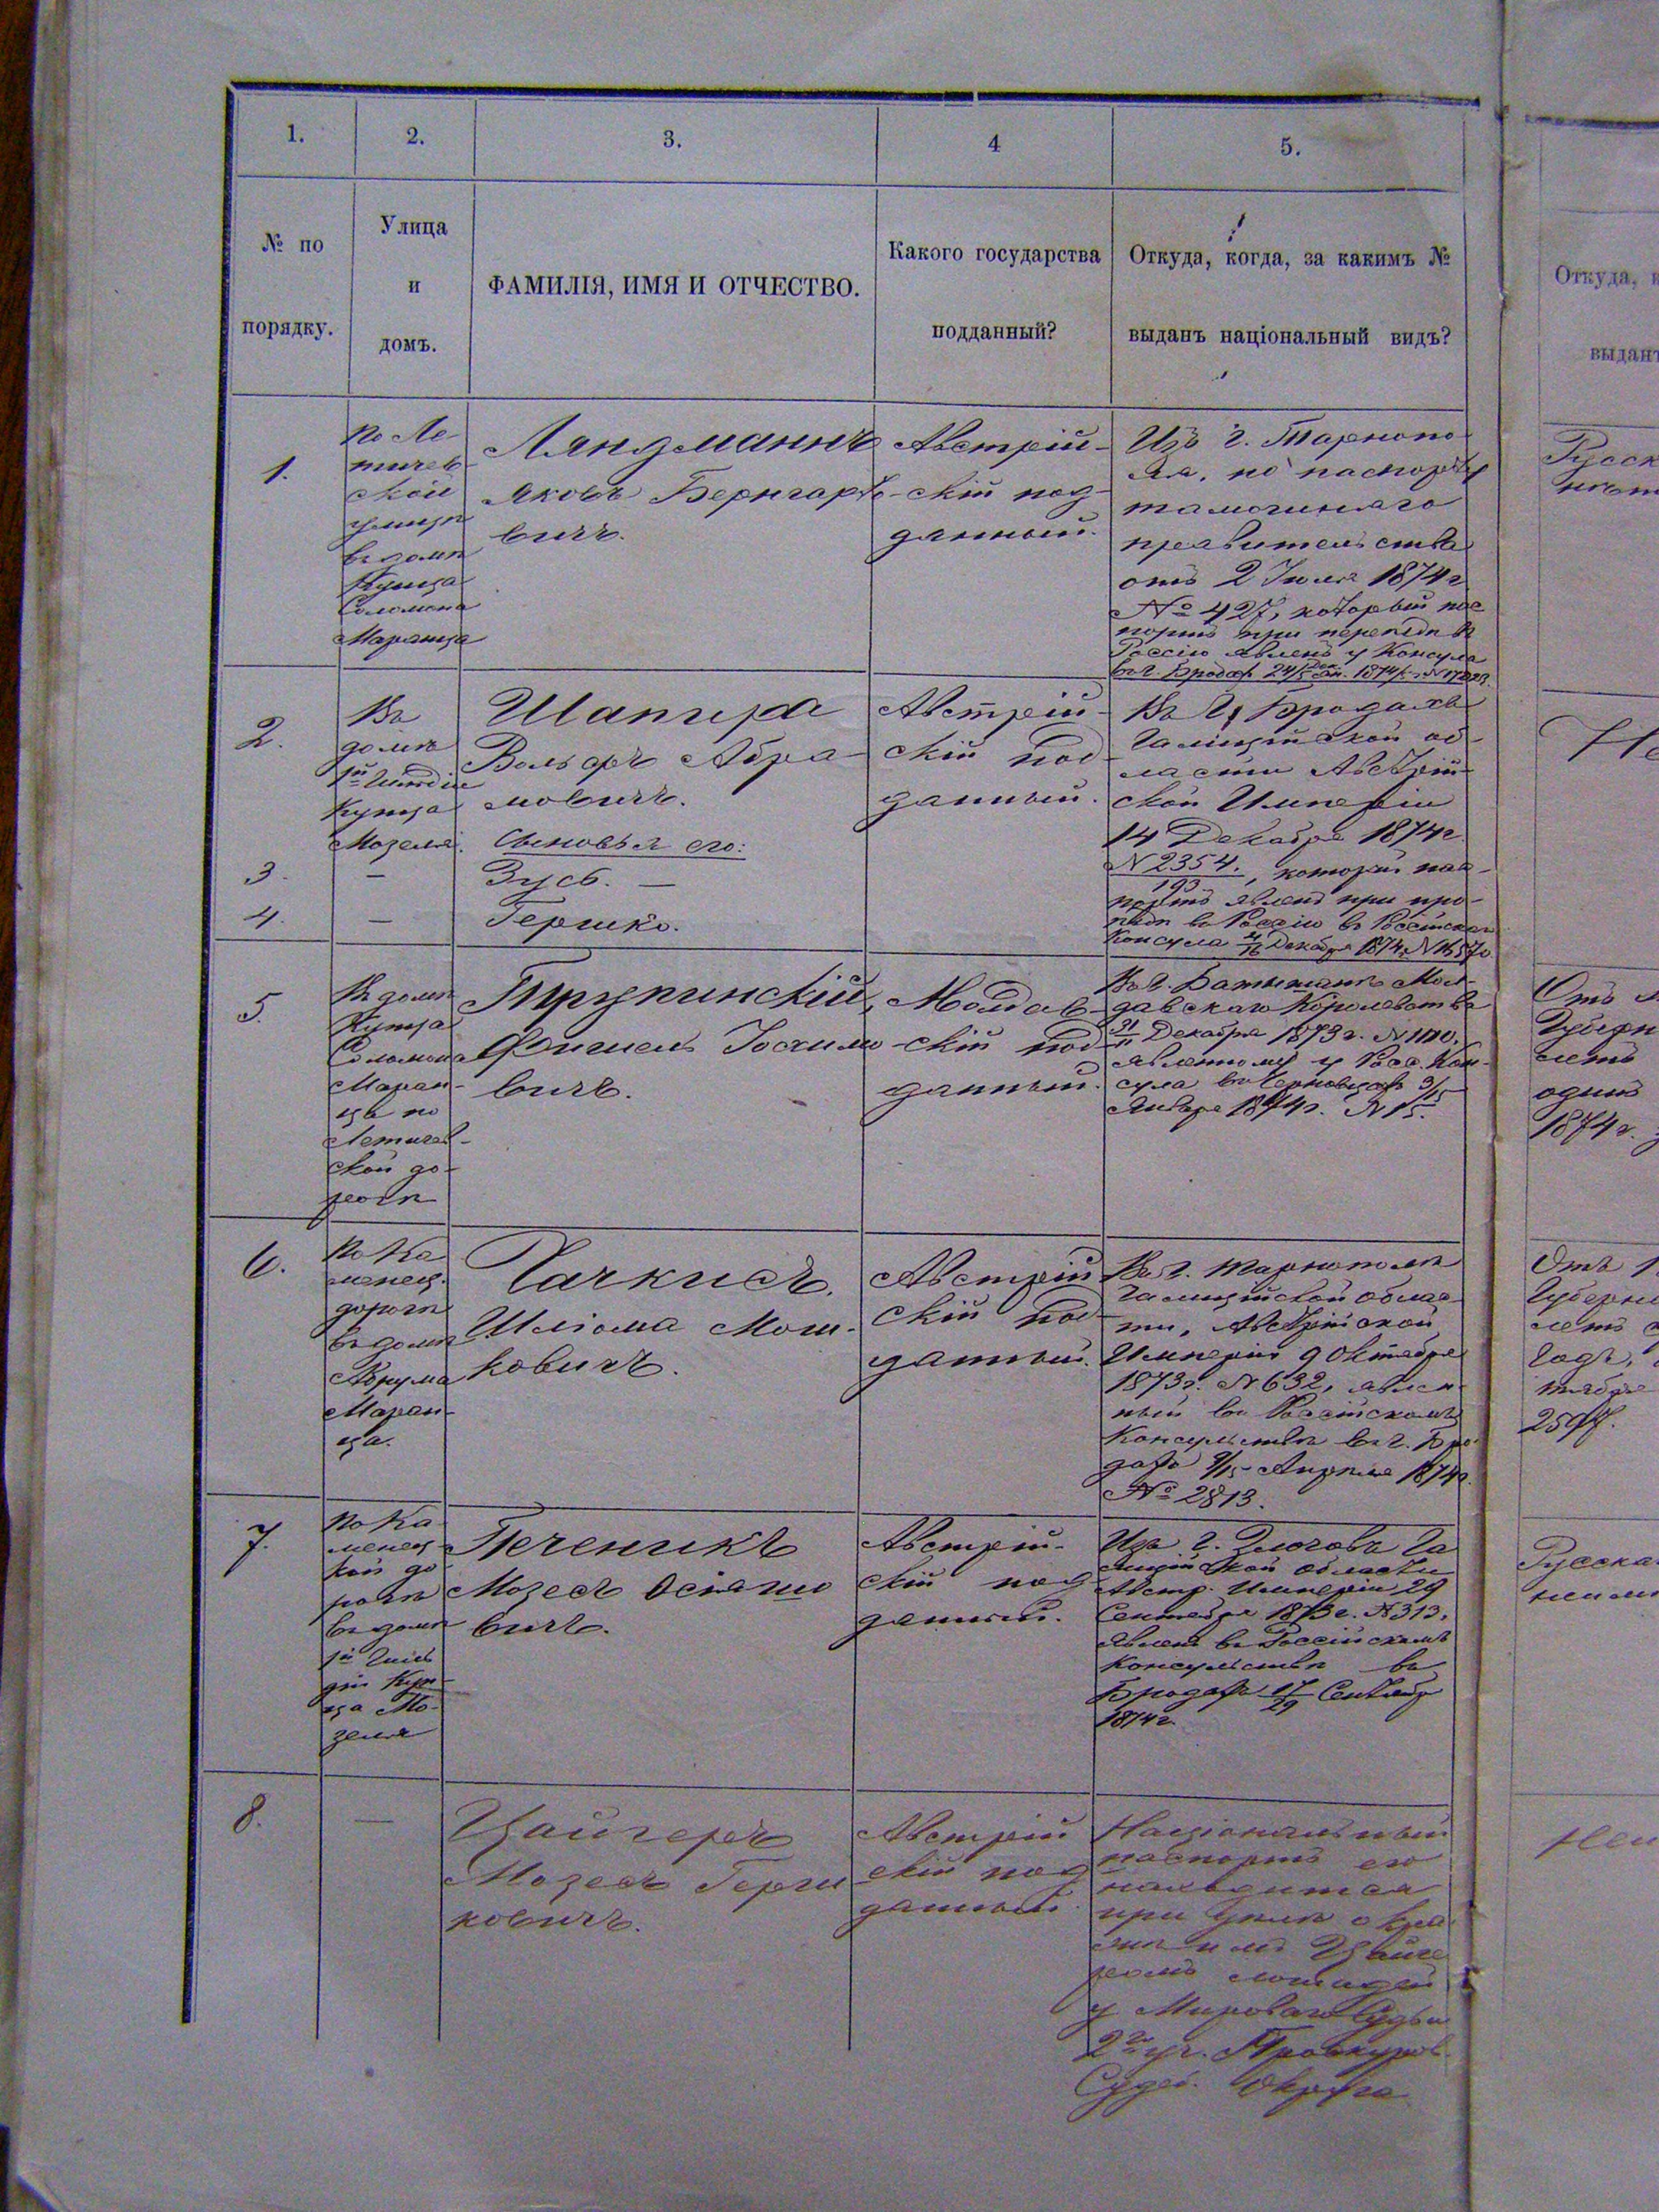 1.
2.
3.
4
5.
№ по
порядку.
Улица
и
домъ.
ФАМИЛІЯ, ИМЯ И ОТЧЕСТВО.
Какого государства
подданный?
Откуда, когда, за какимъ №
выданъ національный видъ?
Откуда,
выдан
1.
По Ле-
тичев-
ской
улицѣ
въ домѣ
Купца
Соломона
Маранца
Ляндманнъ
Яковъ Бернгардо-
вичъ.
Австрій-
скій под-
данный.
Изъ г. Тарнопо-
ля, по паспорту
тамошняго
правительства
отъ 2 Іюля 1874 г
№ 427, который пас
портъ при переѣздѣ в
Россію явленъ у Консула
въ г. Бродахъ 24/5 1874/5
2.
Въ
домѣ
1й Гильдіи
Купца
Мозеля.
Шапира
Вольфъ Абра-
мовичъ.
Сыновья его:
Австрій-
скій под-
данный.
Въ г. Бродахъ
Галиційской об-
ласти Австрій-
ской Имперіи
14 Декабря 1874 г
N 2354./193, который пас-
портъ явленъ при про-
ѣздѣ въ Россію в Россійскаго
Консула 4/16 Декабря 1874 г. N 16570
3.
—
Зусь. —
4.
—
Гершко.
5.
Въ домѣ
Купца
Соломона
Маран-
ца по
Летичев-
ской до-
рогѣ
Фишель
вичъ.
Молдав-
скій под-
данный.
Въ г. Мол-
давскаго Королевства
31 Декабря 1873 г.
явленному у Росс. Кон-
сула въ Черновцахъ 3/15
Января 1874 г. N 15.
6.
По Ка
менец.
дорогѣ
въ домѣ
Абрума
Маран-
ца.
Чачкисъ.
Шліома Мош-
ковичъ.
Австрій
скій под-
данный.
Въ г. Тарнополѣ
Галиційской облас-
ти, Австрійской
Имперіи 9 Октября
1873 г. N 632, явлен-
ный въ Россійскомъ
Консульствѣ въ г. Бро-
дахъ 3/15 Апрѣля 1874 г.
№ 2813.
7.
По Ка
менец-
кой до
рогѣ
въ домѣ
1й Гиль
діи Куп-
ца Мо-
зеля
Печеникъ
Мозесъ Осіяшо
вичъ.
Австрій-
скій под
данный.
Изъ г. Злочовъ Га
лиційской области
Австр. Имперіи 29
Сентября 1873 г. N 313,
явленъ въ Россійскомъ
Консульствѣ въ
Бродахъ 17/29 Сентября
1874 г.
8.
—
Цайгеръ
Мозесъ Герш
ковичъ.
Австрій
скій под
данный.
Національный
паспортъ его
находится
при дѣлѣ о кра
жѣ имъ Цайге
ромъ лошадей
у Мироваго Судьи
2го уч. Проскуров.
Судеб. Округа
Русск
Не
Отъ
Губерн
летъ
одинъ
1874 г.
Отъ
Губерн
летъ
годъ,
тября
2597.
Русска